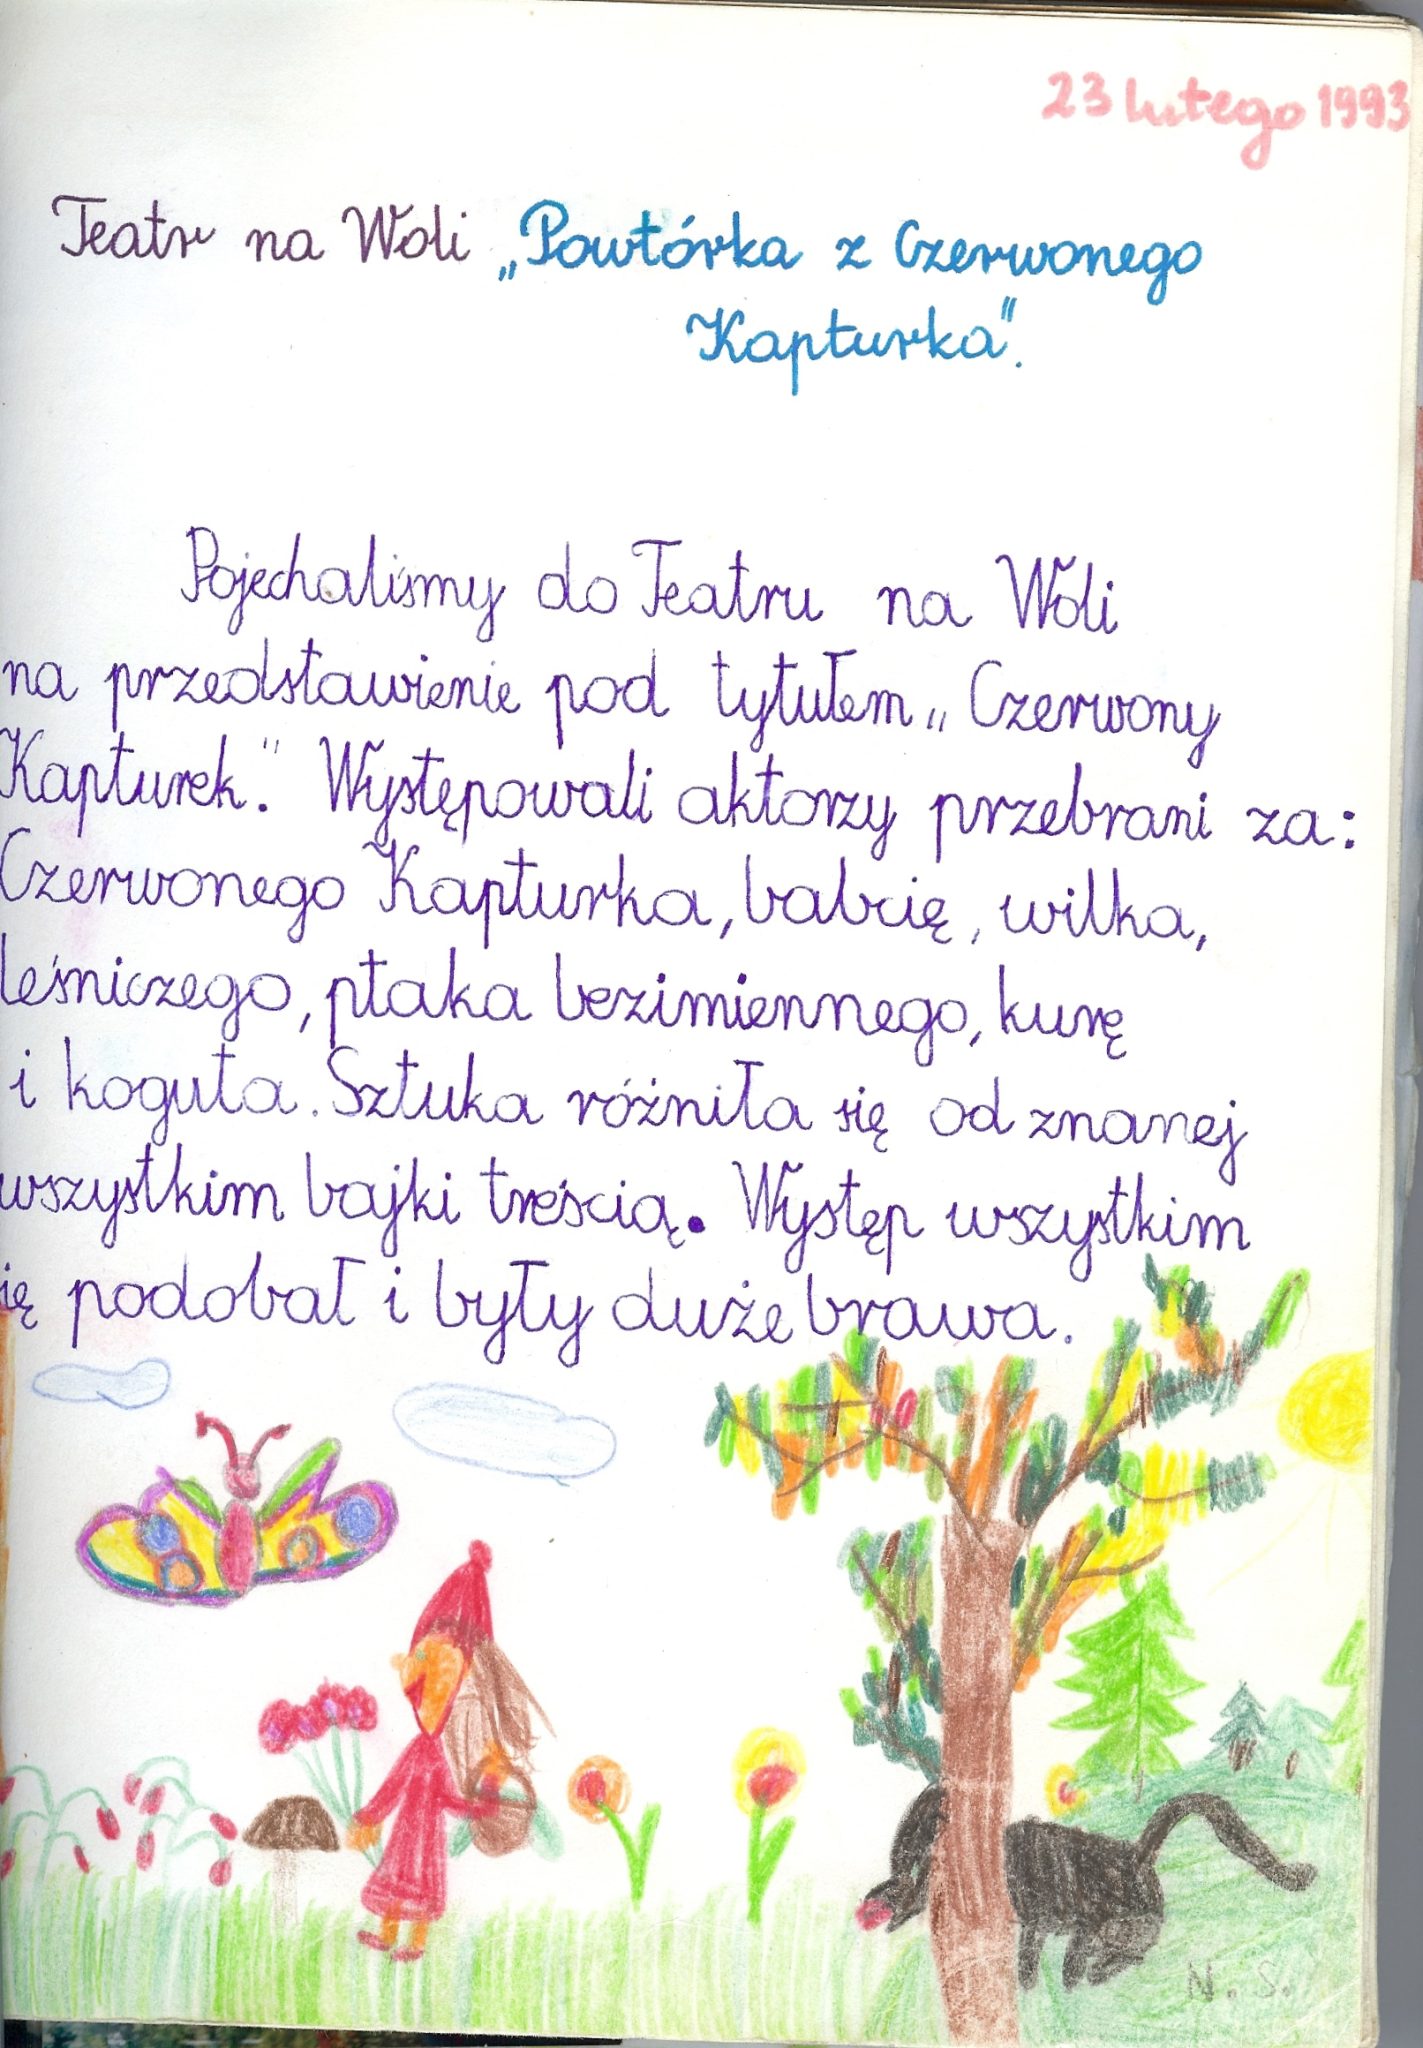 23 lutego 1993
Teatr na Woli „Powtórka z Czerwonego
Kapturka".
Pojechaliśmy do Teatru na Woli
na przedstawienie pod tytułem „Czerwony
Kapturek". Występowali aktorzy przebrani za:
Czerwonego Kapturka, babcię, wilka,
leśniczego, ptaka bezimiennego, kurę
i koguta. Sztuka różniła się od znanej
wszystkim bajki treścią. Występ wszystkim
się podobał i były duże brawa.
N. S.